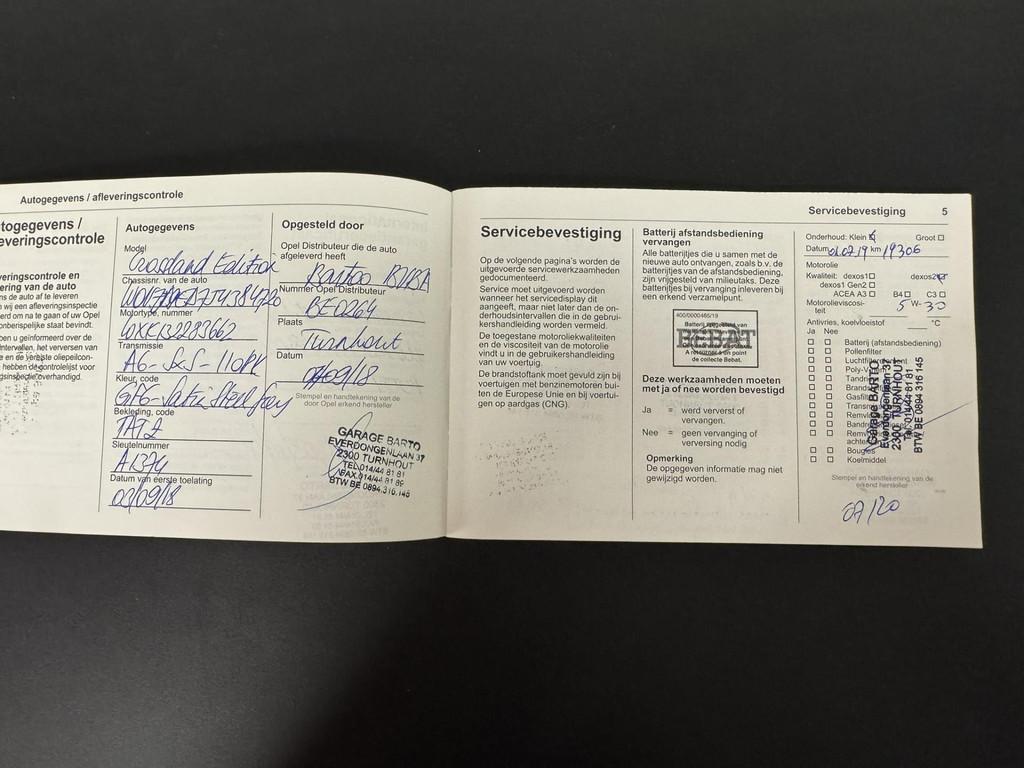 Autogegevens / afleveringscontrole
togegevens /
everingscontrole
veringscontrole en
ering van de auto
ns de auto af te leveren
n wij een afleveringsinspectie
erd om na te gaan of uw Opel
onberispelijke staat bevindt.
en u geïnformeerd over de
intervallen, het verversen van
e en de vereiste oliepeilcon-
hebben de controlelijst voor
gsinspectie overhandigd.
Autogegevens
Model
Crossland Edition
Chassisnr. van de auto
Motortype, nummer
Transmissie
A6-S&S-110PK
Kleur, code
Bekleding, code
TAT2
Sleutelnummer
A1374
Datum van eerste toelating
03/09/18
Opgesteld door
Opel Distributeur die de auto
afgeleverd heeft
Nummer Opel Distributeur
BE0264
Plaats
Turnhout
Datum
Stempel en handtekening van de
door Opel erkend hersteller
GARAGE BARTO
EVERDONGENLAAN 37
2300 TURNHOUT
TEL.014/44 81 81
FAX.014/44 81 89
BTW BE 0894.316.145
Servicebevestiging 5
Servicebevestiging
Op de volgende pagina's worden de
uitgevoerde servicewerkzaamheden
gedocumenteerd.
Service moet uitgevoerd worden
wanneer het servicedisplay dit
aangeeft, maar niet later dan de on-
derhoudsintervallen die in de gebrui-
kershandleiding worden vermeld.
De toegestane motoroliekwaliteiten
en de viscositeit van de motorolie
vindt u in de gebruikershandleiding
van uw voertuig.
De brandstoftank moet gevuld zijn bij
voertuigen met benzinemotoren bui-
ten de Europese Unie en bij voertui-
gen op aardgas (CNG).
Batterij afstandsbediening
vervangen
Alle batterijtjes die u samen met de
nieuwe auto ontvangen, zoals b.v. de
batterijtjes van de afstandsbediening,
zijn vrijgesteld van milieutaks. Deze
batterijtjes bij vervanging inleveren bij
een erkend verzamelpunt.
400/0000465/19
BEBAT
A retourner à un point
de collecte Bebat.
Deze werkzaamheden moeten
met ja of nee worden bevestigd
Ja = werd ververst of
vervangen.
Nee = geen vervanging of
verversing nodig
Opmerking
De opgegeven informatie mag niet
gewijzigd worden.
Onderhoud: Klein Groot
Datum 01.07.19 km 19306
Motorolie
Kwaliteit: dexos1 dexos2
dexos1 Gen2
ACEA A3 B4 C3
Motorolieviscosi- 5 W- 30
teit
Antivries, koelvloeistof °C
Ja Nee
Batterij (afstandsbediening)
Pollenfilter
Luchtfilter
Bougies
Koelmiddel
Garage BARTO
Everdongenlaan 37
2300 TURNHOUT
Tel. 014/44 81 81
BTW BE 0894 316 145
Stempel en handtekening van de
erkend hersteller
07/20